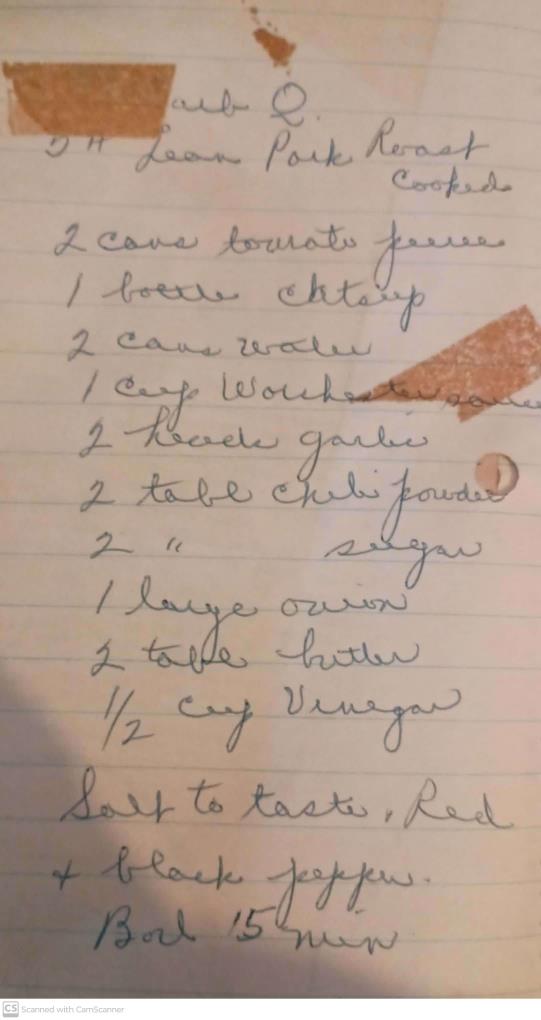 arb Q.
5 # Lean Pork Roast
Cooked
2 cans tomato puree
1 bottle chtsup
2 cans water
1 cup Worchester sauce
2 heads garlic
2 tabl chili powder
2 " sugar
1 large onion
2 table butter
1/2 cup Vinegar
Salt to taste, Red
+ black pepper.
Boil 15 min
CS Scanned with CamScanner